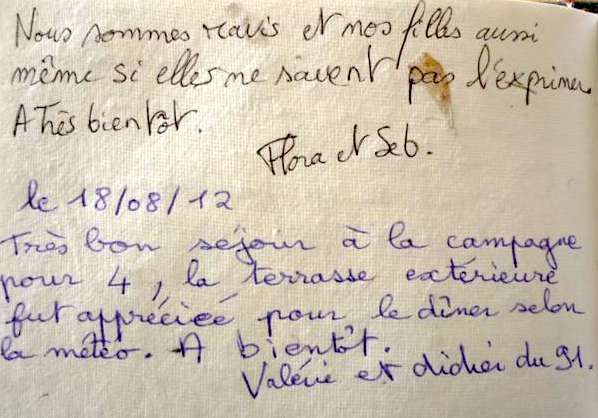 Nous sommes ravis et nos filles aussi
même si elles ne savent pas l'exprimer.
A très bientôt.
Flora et Seb.
le 18/08/12
Très bon séjour à la campagne
pour 4, la terrasse extérieure
fut appréciée pour le dîner selon
la météo. A bientôt.
Valérie et didier du 91.